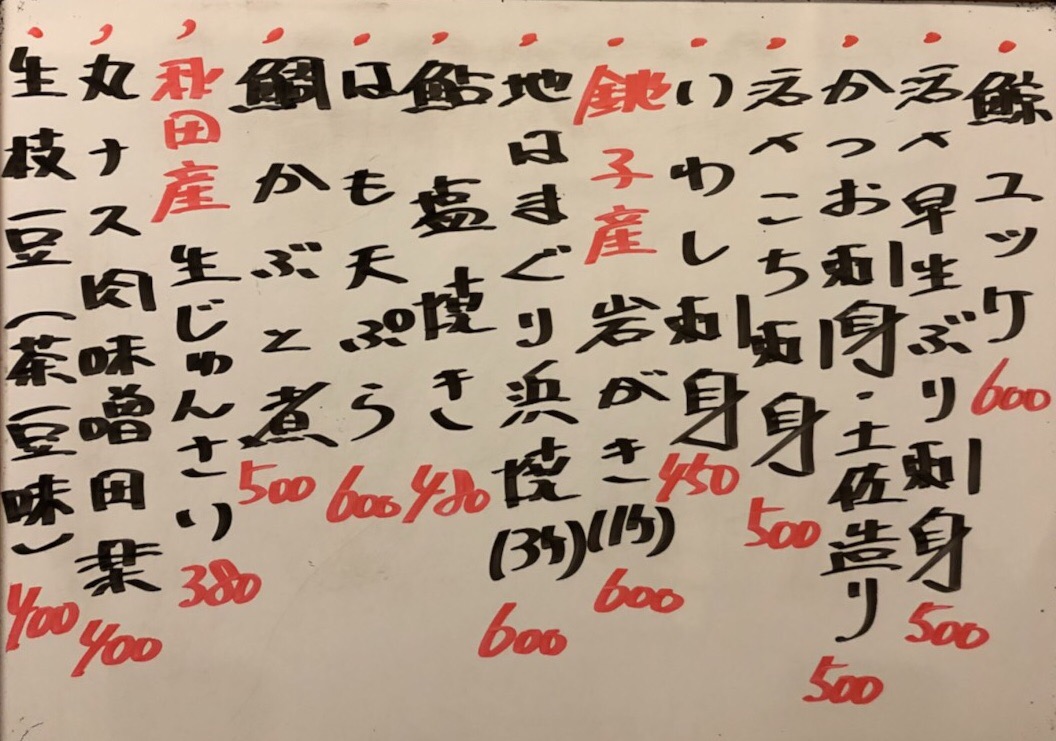 鯨ユッケ 600
活〆早生ぶり刺身 500
かつお刺身・土佐造り 500
活〆こち刺身 500
いわし刺身 450
銚子産岩がき(1ケ) 600
地はまぐり浜焼(3ケ) 600
鮎塩焼き 480
はも天ぷら 600
鯛かぶと煮 500
秋田産生じゅんさい 380
丸ナス肉味噌田楽 400
生枝豆(茶豆味) 400